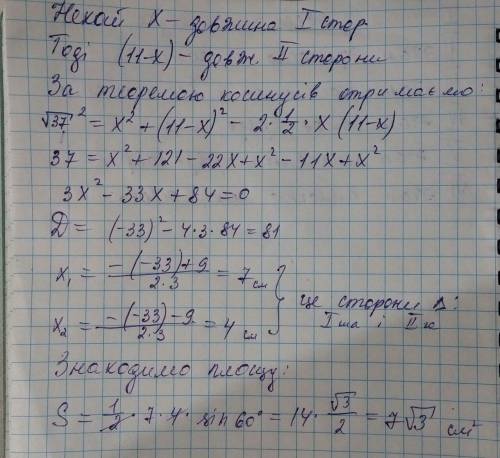 Нехай x – довжина I стор
Тоді (11-x) – довж II сторони
За теоремою косинусів отримаємо:
√37² = x² + (11-x)² - 2·1/2·x(11-x)
37 = x² + 121 - 22x + x² - 11x + x²
3x² - 33x + 84 = 0
D = (-33)² - 4·3·84 = 81
x₁ = (-(-33)+9)/(2·3) = 7 см
x₂ = (-(-33)-9)/(2·3) = 4 см
це сторони Δ:
I ша і II га
Знаходимо площу:
S = 1/2·7·4·sin 60° = 14·√3/2 = 7√3 см²